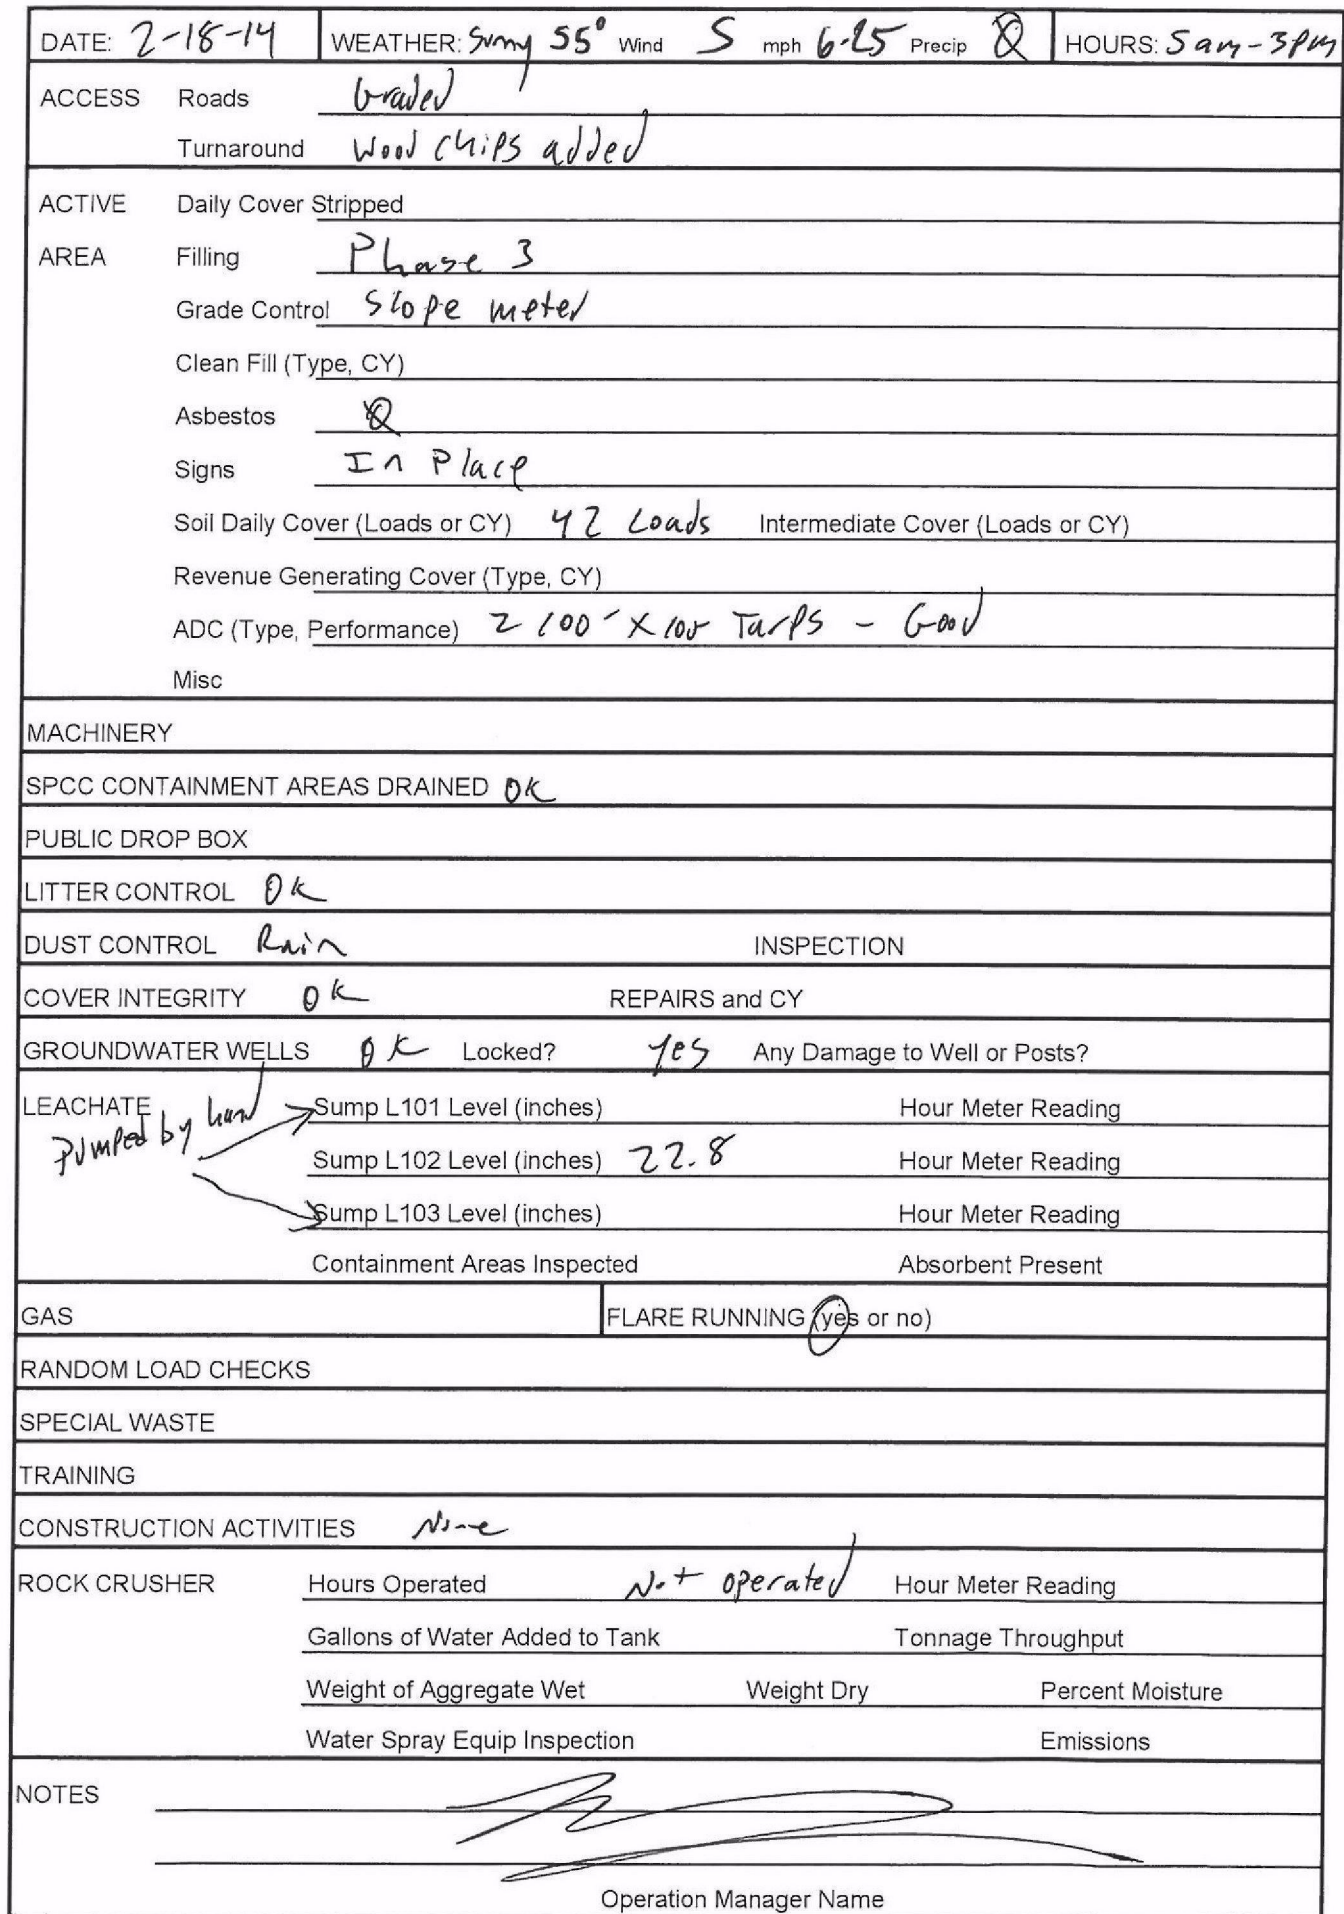 DATE: 2-18-14 WEATHER: Sunny 55° Wind S mph 6-25 Precip Ø HOURS: 5am-3pm
ACCESS Roads Graded
Turnaround Wood chips added
ACTIVE Daily Cover Stripped
AREA Filling Phase 3
Grade Control Slope meter
Clean Fill (Type, CY)
Asbestos Ø
Signs In Place
Soil Daily Cover (Loads or CY) 42 Loads Intermediate Cover (Loads or CY)
Revenue Generating Cover (Type, CY)
ADC (Type, Performance) 2 100' X 100' Tarps - Good
Misc
MACHINERY
SPCC CONTAINMENT AREAS DRAINED OK
PUBLIC DROP BOX
LITTER CONTROL OK
DUST CONTROL Rain INSPECTION
COVER INTEGRITY OK REPAIRS and CY
GROUNDWATER WELLS OK Locked? Yes Any Damage to Well or Posts?
LEACHATE Sump L101 Level (inches) Hour Meter Reading
Pumped by hand
Sump L102 Level (inches) 22.8 Hour Meter Reading
Sump L103 Level (inches) Hour Meter Reading
Containment Areas Inspected Absorbent Present
GAS FLARE RUNNING (yes or no)
RANDOM LOAD CHECKS
SPECIAL WASTE
TRAINING
CONSTRUCTION ACTIVITIES None
ROCK CRUSHER Hours Operated Not operated Hour Meter Reading
Gallons of Water Added to Tank Tonnage Throughput
Weight of Aggregate Wet Weight Dry Percent Moisture
Water Spray Equip Inspection Emissions
NOTES
Operation Manager Name